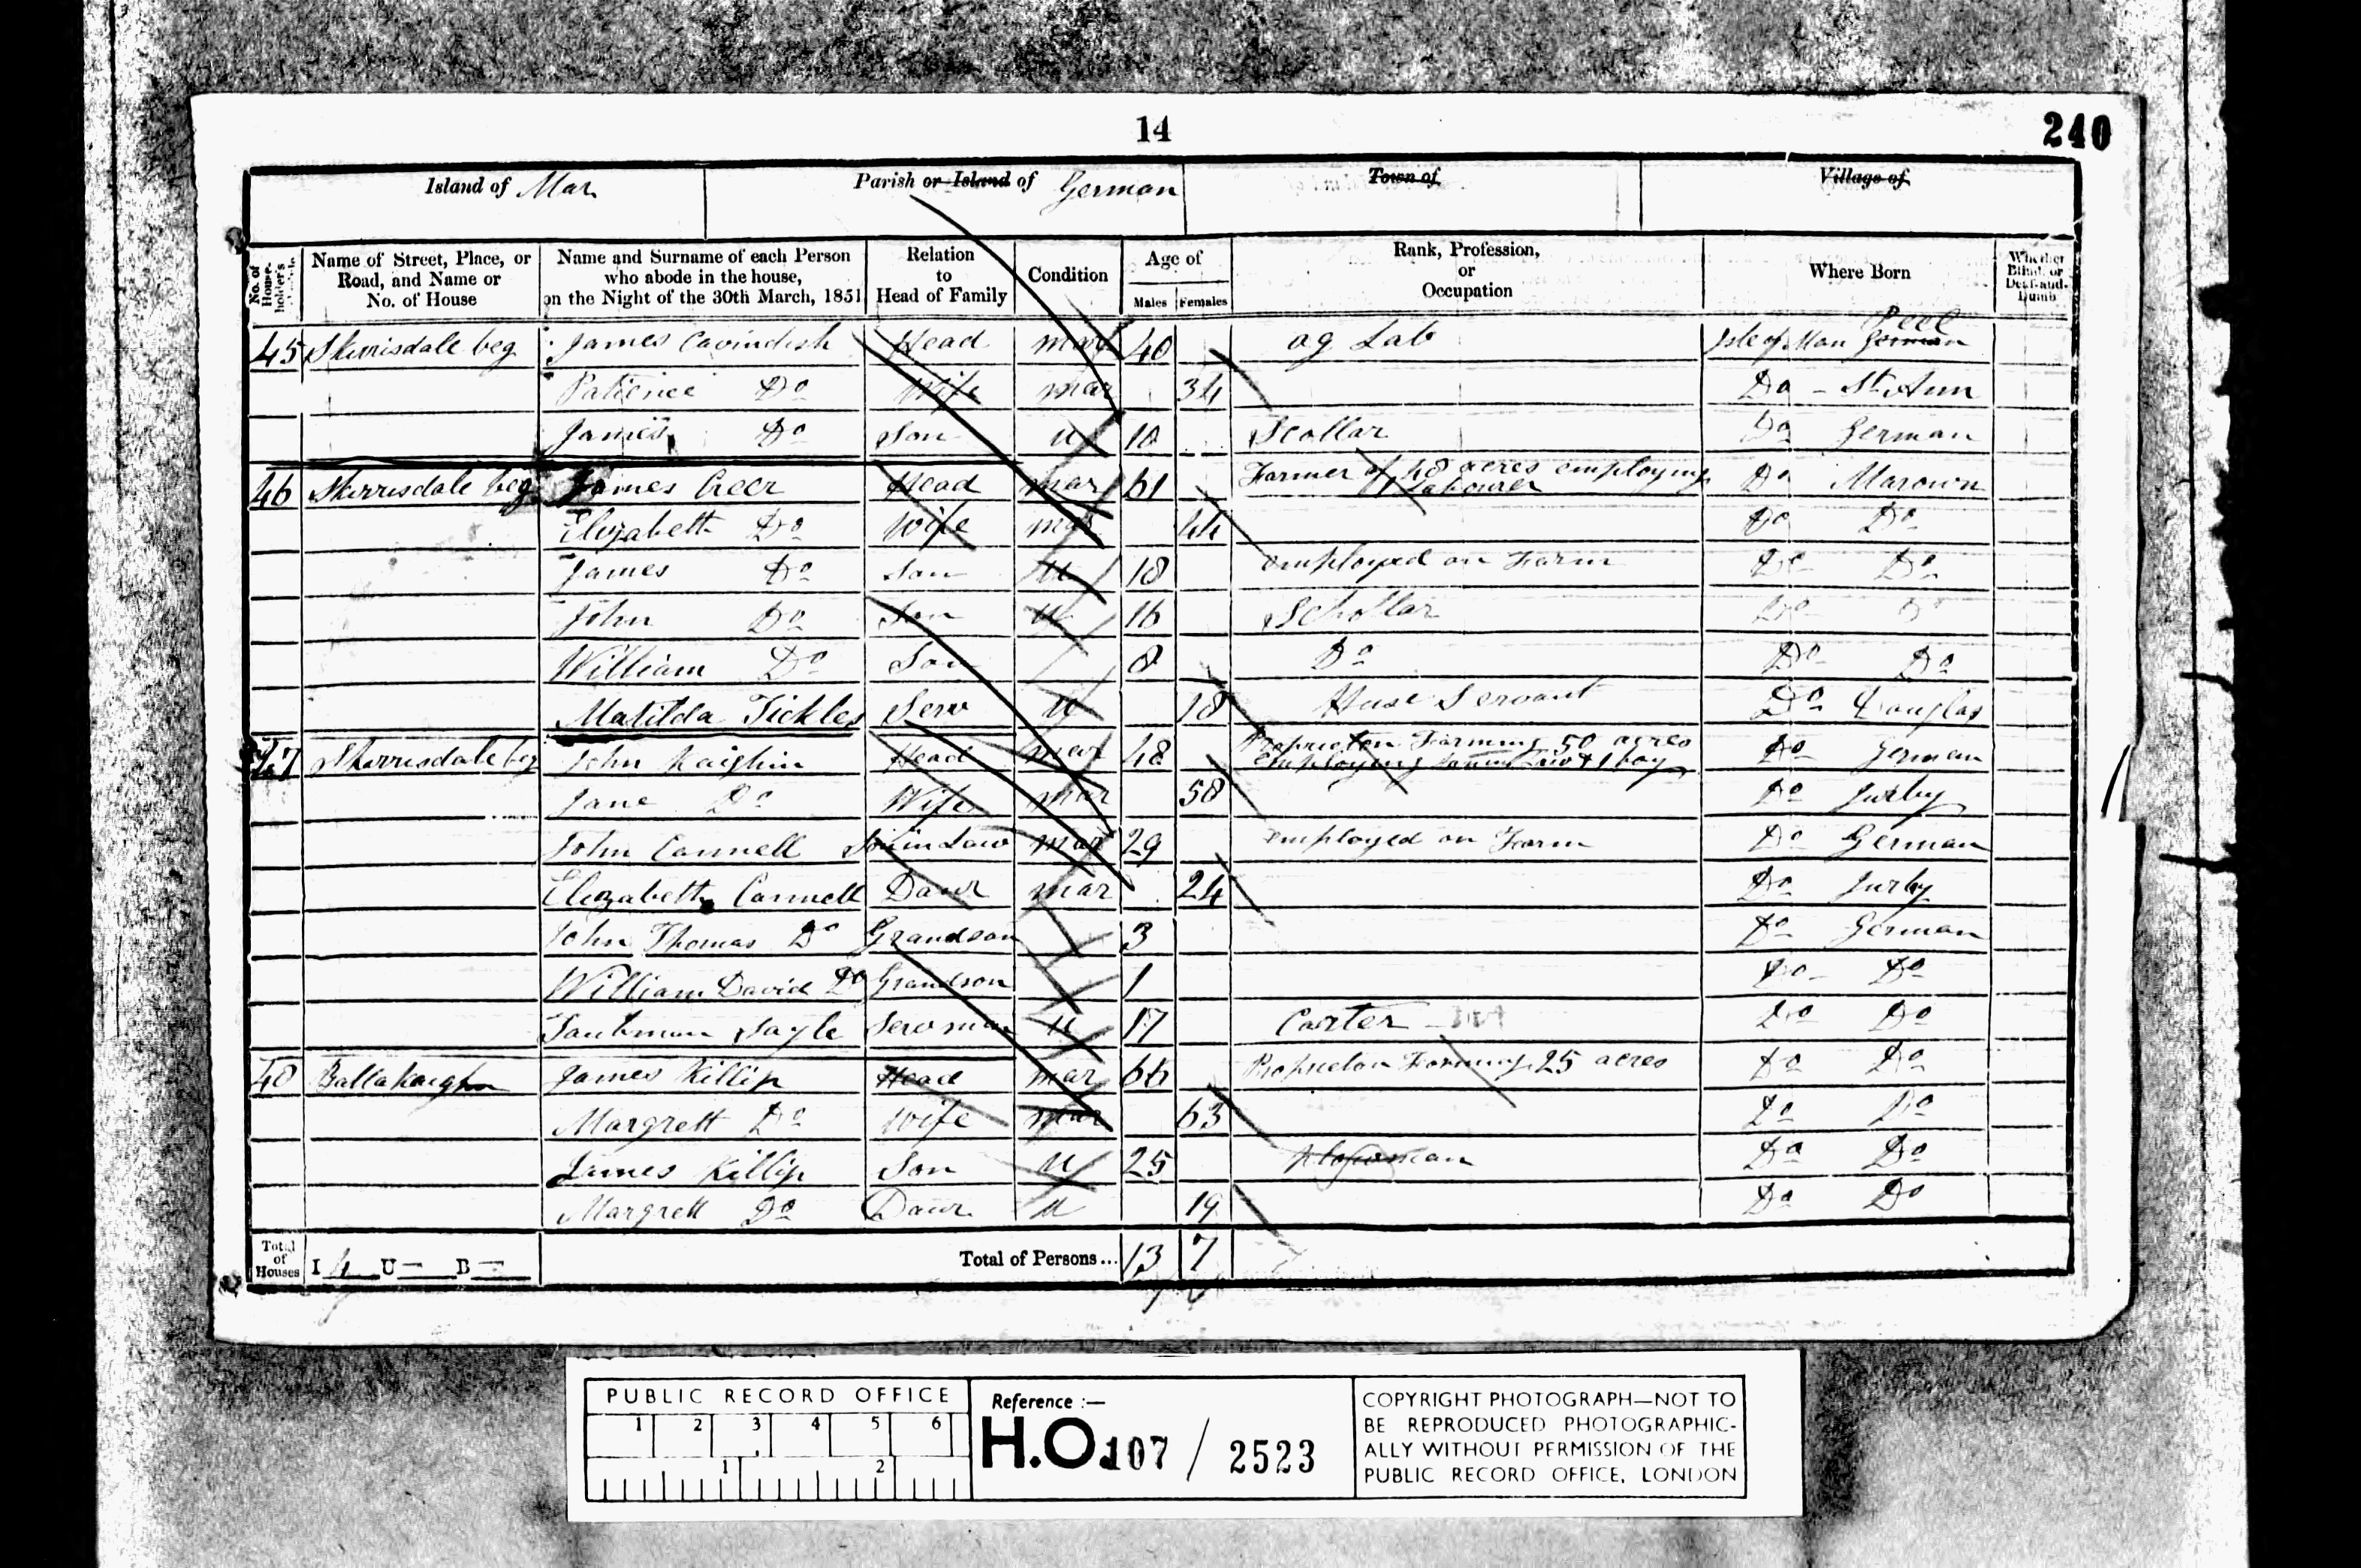 14
240
Island of Man
Parish or Island of German
Town of
Village of
No. of House-holder's
Name of Street, Place, or Road, and Name or No. of House
Name and Surname of each Person who abode in the house, on the Night of the 30th March, 1851
Relation to Head of Family
Condition
Age of
Males Females
Rank, Profession, or Occupation
Where Born
Whether Blind, or Deaf-and-Dumb
Peel
45 Skerrisdale beg James Cavindish Head mar 40 ag Lab Isle of Man German
Patience Do Wife mar 34 Do - St Ann
James Do Son U 10 Scollar Do German
46 Skerrisdale beg James Creer Head mar 61 Farmer of acres employing Labourer Do Marown
Elizabeth Do Wife mar 44 Do Do
James Do Son U 18 employed on Farm Do Do
John Do Son U 16 Schollar Do Do
William Do Son 8 Do Do Do
Matilda Tickles Serv U 18 Huse Servant Do Douglas
47 Skerrisdale beg John Kaighin Head mar 48 Proprietor Farming 50 acres employing boy Do German
Jane Do Wife mar 58 Do Jurby
John Cannell Son in Law mar 29 employed on Farm Do German
Elizabeth Cannell Daur mar 24 Do Jurby
John Thomas Do Grandson 3 Do German
William David Do Grandson 1 Do Do
Taubman Sayle Serv man U 17 Carter Do Do
48 Ballakaighin James Killip Head mar 66 Proprietor Farming 25 acres Do Do
Margrett Do Wife mar 63 Do Do
James Killip Son U 25 Plowman Do Do
Margrett Do Daur U 19 Do Do
Total of Houses I 4 U — B —
Total of Persons... 13 7
PUBLIC RECORD OFFICE
1 2 3 4 5 6
1 2
Reference :—
H.O. 107 / 2523
COPYRIGHT PHOTOGRAPH—NOT TO
BE REPRODUCED PHOTOGRAPHIC-
ALLY WITHOUT PERMISSION OF THE
PUBLIC RECORD OFFICE, LONDON